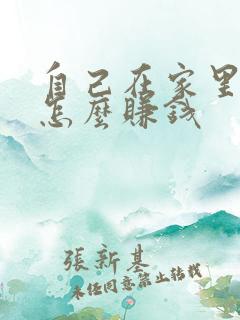 自己在家里
怎麼賺錢
張新基
未经同意禁止转载